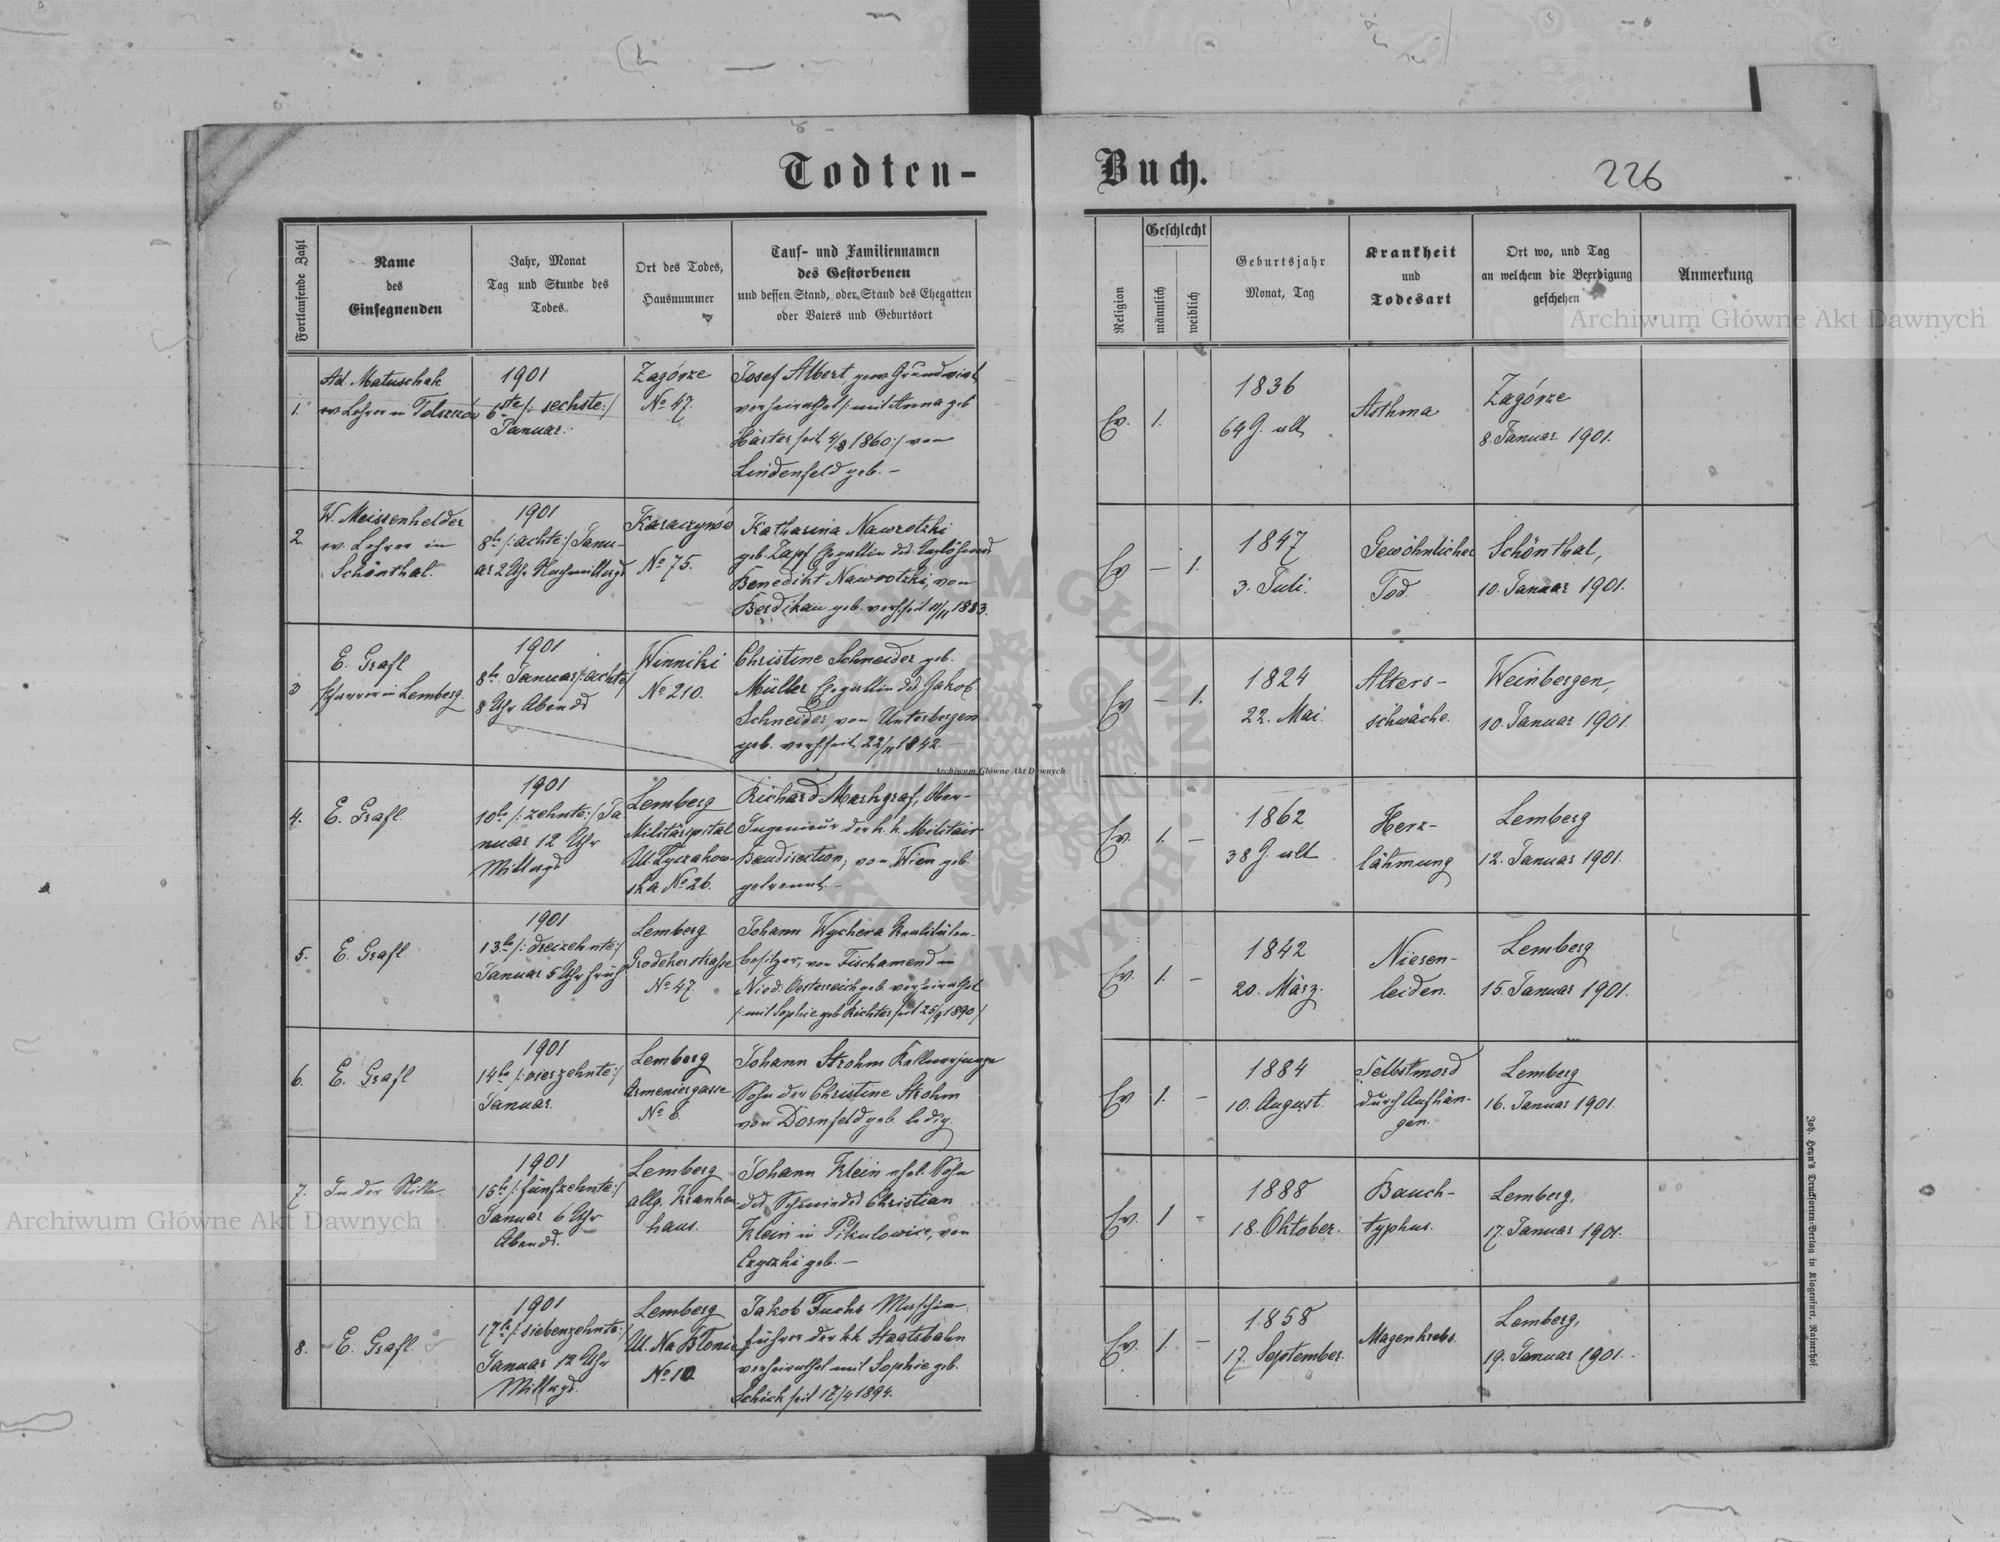 Todten-
Buch.
226
Fortlaufende Zahl
Name
des
Einsegnenden
Jahr, Monat
Tag und Stunde des
Todes
Ort des Todes,
Hausnummer
Tauf- und Familiennamen
des Gestorbenen
und dessen Stand, oder Stand des Ehegatten
oder Vaters und Geburtsort
Religion
Geschlecht
männlich
weiblich
Geburtsjahr
Monat, Tag
Krankheit
und
Todesart
Ort wo, und Tag
an welchem die Beerdigung
geschehen
Anmerkung
1.
Ad. Matuschek
ev. Lehrer in
1901
6te /: sechste :/
Januar.
Zagórze
No 47.
Josef Albert, gew. Grundwirt,
verheirathet /: mit Anna geb
Härter seit 4/8 1860 :/ von
Lindenfeld geb. –
Ev.
1.
1836
64 J. alt
Asthma
Zagórze
8. Januar 1901.
2.
W. Meissenhelder
ev. Lehrer in
Schönthal.
1901
8te /: achte :/ Janu-
ar 2 Uhr Nachmittags
Karaczynów
No 75.
Katharina Nawrotzki
geb. Zapf Ehegattin des
Benedikt Nawrotzki, von
Berdikau geb. verh. seit 11/11 1883.
Ev
–
1.
1847
3. Juli.
Gewöhnlicher
Tod.
Schönthal,
10. Januar 1901.
3
E. Grafl
Pfarrer in Lemberg.
1901
8te Januar /: achte :/
8 Uhr Abends
Winniki
No 210.
Christine Schneider geb.
Müller Ehegattin des Jakob
Schneider, von Unterbergen
geb. verh. seit 22/11 1842. –
Ev
–
1.
1824
22. Mai.
Alters-
schwäche.
Weinbergen,
10. Januar 1901.
4.
E. Grafl.
1901
10te /: zehnte :/ Ja
nuar 12 Uhr
Mittags
Lemberg
Militärspital
Ul. Łyczakow-
ska No 26.
Richard Markgraf, Ober-
Ingenieur der k. k. Militair
Baudirection, von Wien geb.
getrennt. –
Ev.
1.
–
1862
38 J. alt
Herz-
lähmung
Lemberg
12. Januar 1901.
5.
E. Grafl
1901
13te /: dreizehnte :/
Januar 5 Uhr früh
Lemberg
Grodekerstrasse
No 47
Johann Wychera Realitäten-
besitzer, von Fischamend in
Nied. Oesterreich geb. verheirathet
/: mit Sophie geb Richter seit 25/9 1890 /
Ev.
1.
–
1842
20. März.
Nieren-
leiden.
Lemberg
15. Januar 1901.
6.
E. Grafl
1901
14te /: vierzehnte :/
Januar.
Lemberg
Armeniergasse
No 8.
Johann Strohm Kellnerjunge
Sohn der Christine Strohm
von Dornfeld geb. ledig.
Ev
1.
–
1884
10. August.
Selbstmord
durch Aufhän-
gen.
Lemberg
16. Januar 1901.
7.
In der Stille.
1901
15te /: fünfzehnte :/
Januar 6 Uhr
Abends.
Lemberg
allg. Kranken
haus.
Johann Klein ehel. Sohn
des Schmiedes Christian
Klein in Pikulowice, von
Czyszki geb. –
Ev.
1
–
1888
18. Oktober.
Bauch-
typhus.
Lemberg,
17. Januar 1901.
8.
E. Grafl
1901
17te /: siebenzehnte :/
Januar 12 Uhr
Mittags.
Lemberg
Ul. Na Błonie
No 10
Jakob Fuchs Maschin-
führer der k.k. Staatsbahn
verheirathet mit Sophie geb.
Schick seit 17/4 1894.
Ev.
1.
–
1858
17. September.
Magenkrebs.
Lemberg,
19. Januar 1901. –
Joh. Heyn's Drucksorten-Verlag in Klagenfurt, Rainerhof.
Archiwum Główne Akt Dawnych
Archiwum Główne Akt Dawnych
Archiwum Główne Akt Dawnych